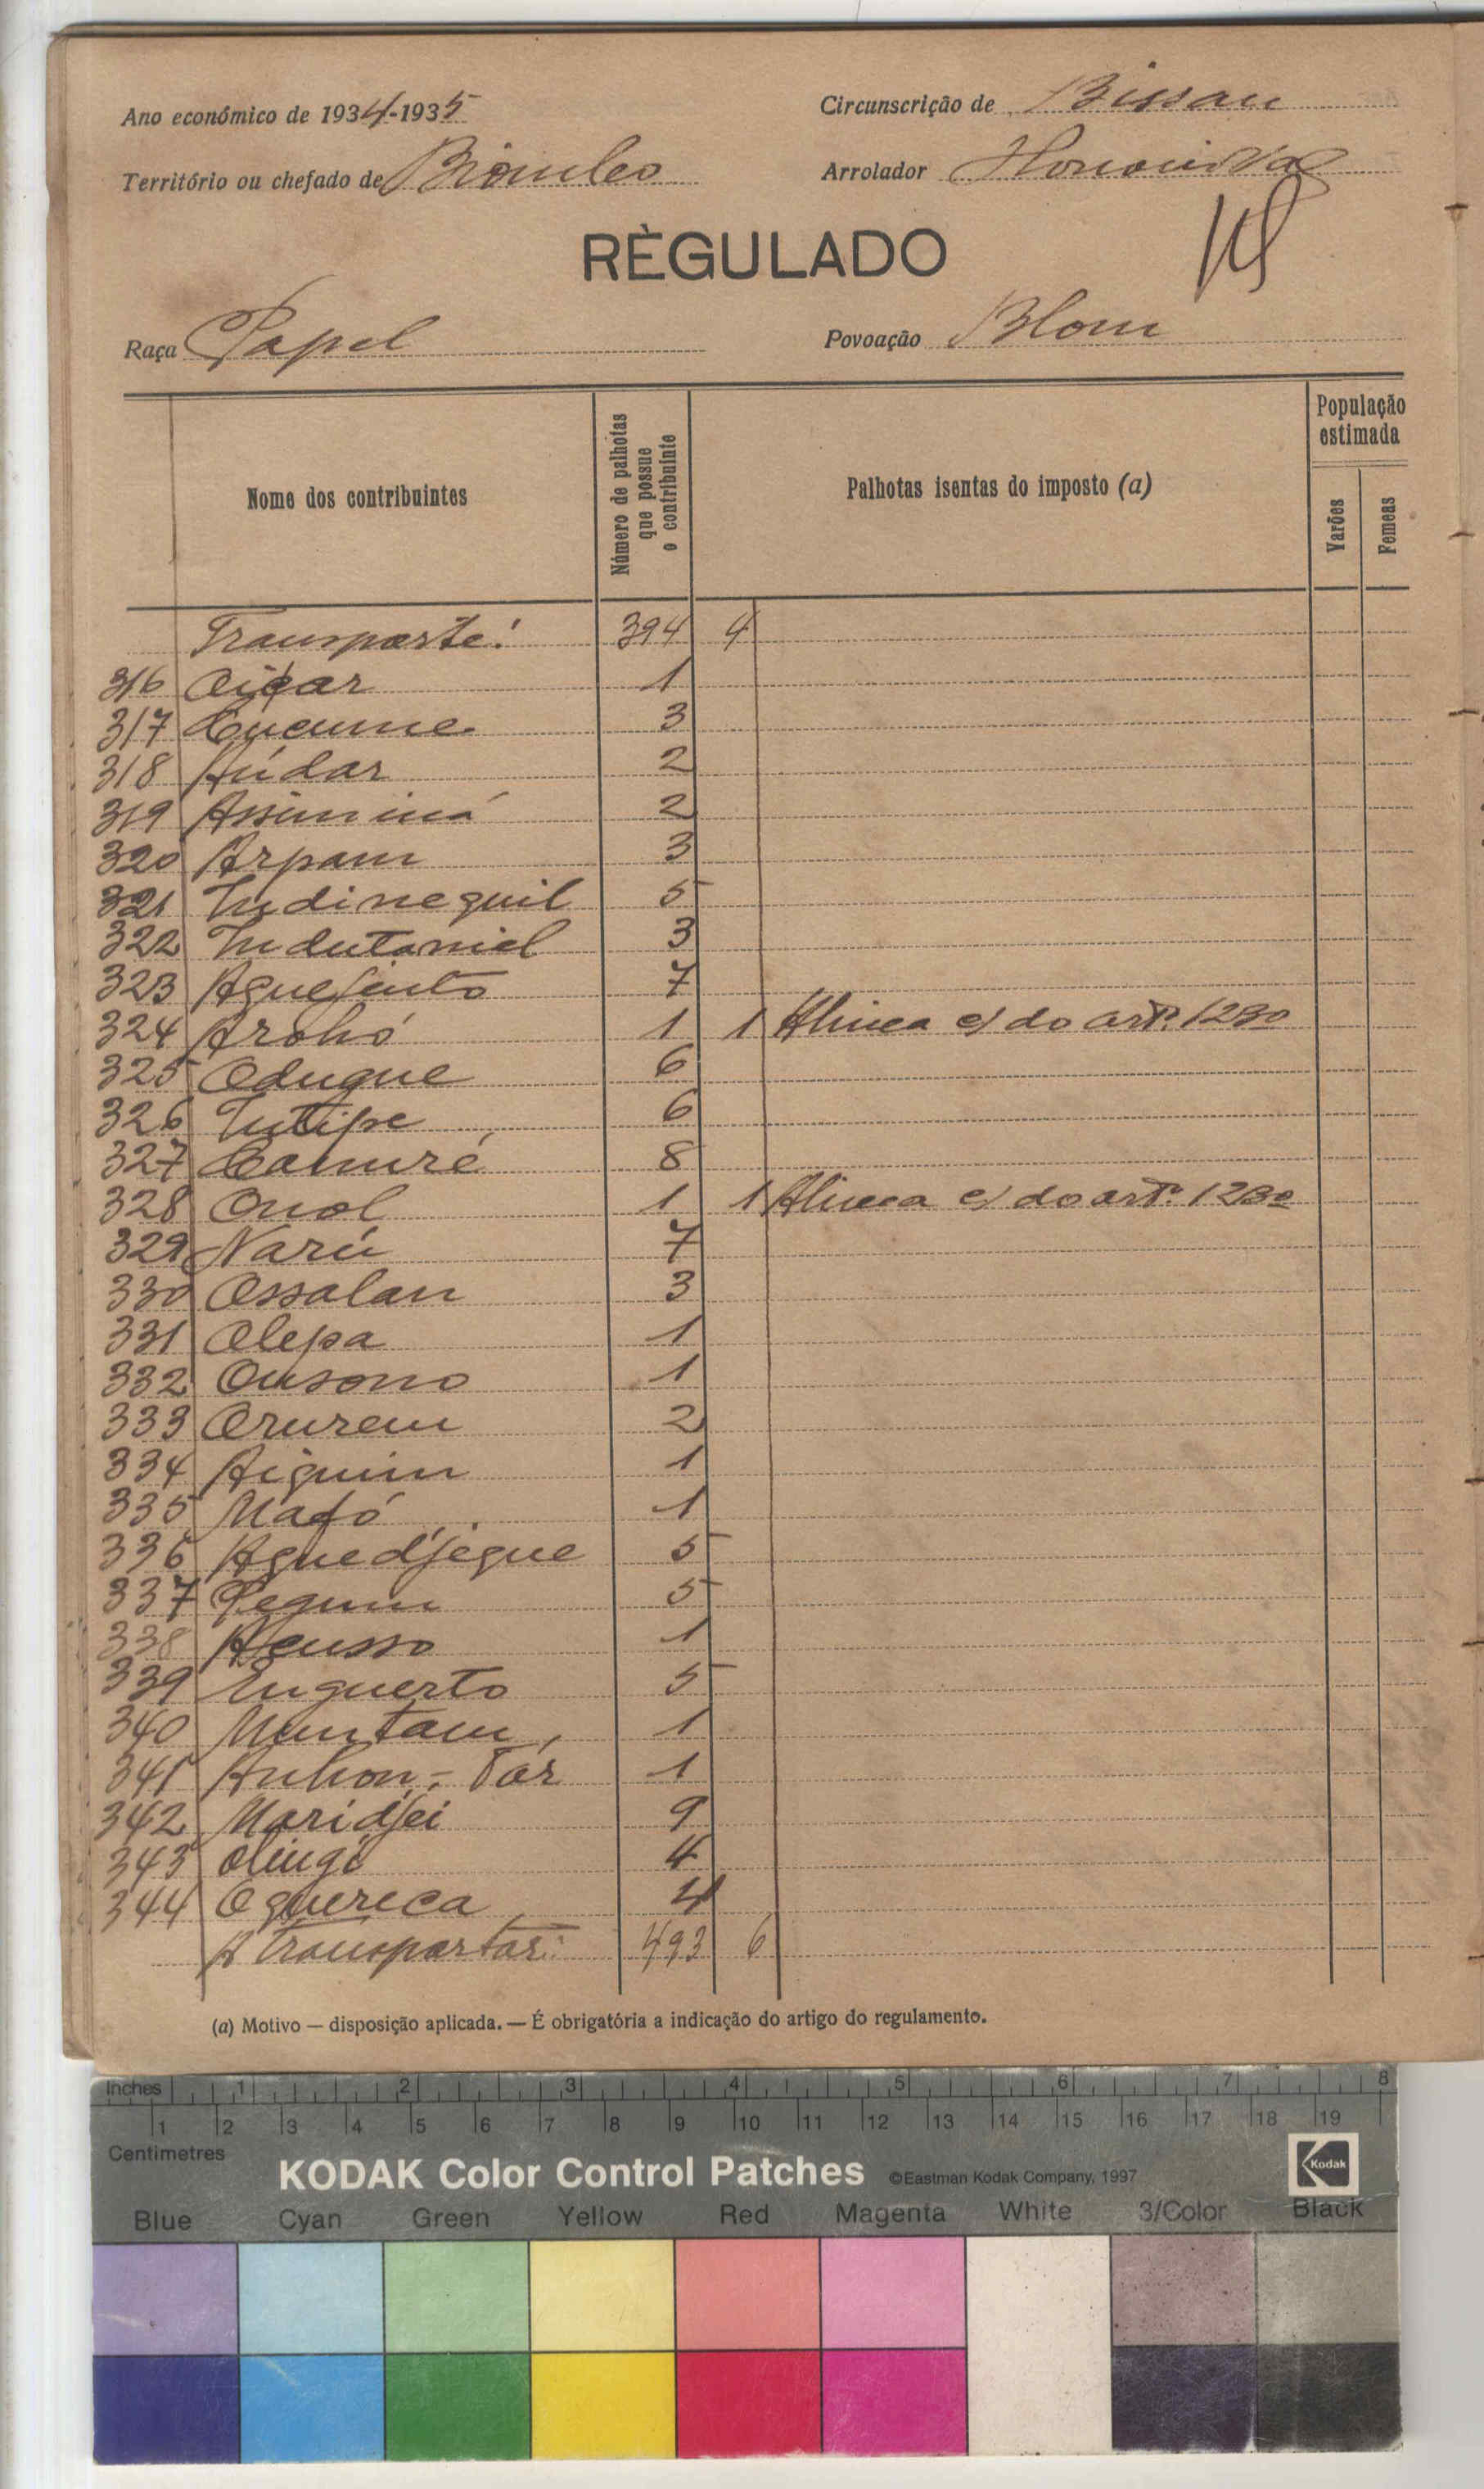 Ano económico de 1934-1935
Circunscrição de Bissau
Território ou chefado de Biombo
Arrolador
RÈGULADO
Raça Papel
Povoação Blom
Nome dos contribuintes
Número de palhotas que possue o contribuinte
Palhotas isentas do imposto (a)
População estimada
Varões
Femeas
Transporte: 394 4
316 1
317 Cucume 3
318 Húdar 2
319 Assiminá 2
320 Arpam 3
321 Indinequil 5
322 Indutaniel 3
323 7
324 Arohó 1 1 Alinea c) do artº. 123º
325 Odugue 6
326 Intipe 6
327 Camuré 8
328 Onol 1 1 Alinea c) do artº. 123º
329 Narú 7
330 Ossalan 3
331 Olepa 1
332 Ousono 1
333 Orurem 2
334 Aiguim 1
335 Mafó 1
336 Aguedjegue 5
337 Pegum 5
338 1
339 Inguerto 5
340 Muntam 1
341 Anhon-Tór 1
342 Maridjei 9
343 Olingi 4
344 Oquereca 4
A Transportar: 493 6
(a) Motivo — disposição aplicada. — É obrigatória a indicação do artigo do regulamento.
Inches 1 2 3 4 5 6 7 8
1 2 3 4 5 6 7 8 9 10 11 12 13 14 15 16 17 18 19
Centimetres
KODAK Color Control Patches ©Eastman Kodak Company, 1997 Kodak
Blue Cyan Green Yellow Red Magenta White 3/Color Black